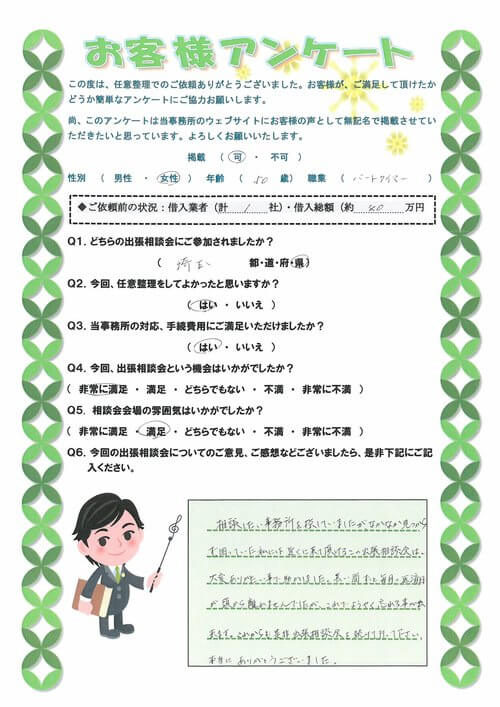 お客様アンケート
この度は、任意整理でのご依頼ありがとうございました。お客様が、ご満足して頂けたか
どうか簡単なアンケートにご協力お願いします。
尚、このアンケートは当事務所のウェブサイトにお客様の声として無記名で掲載させてい
ただきたいと思っています。よろしくお願いいたします。
掲載 ( 可 ・ 不可 )
性別 ( 男性 ・ 女性 ) 年齢 ( 50 歳) 職業 ( パートタイマー )
◆ご依頼前の状況:借入業者(計 1 社)・借入総額(約 40 万円
Q1. どちらの出張相談会にご参加されましたか?
( 埼玉 都・道・府・県 )
Q2. 今回、任意整理をしてよかったと思いますか?
( はい ・ いいえ )
Q3. 当事務所の対応、手続費用にご満足いただけましたか?
( はい ・ いいえ )
Q4. 今回、出張相談会という機会はいかがでしたか?
( 非常に満足 ・ 満足 ・ どちらでもない ・ 不満 ・ 非常に不満 )
Q5. 相談会会場の雰囲気はいかがでしたか?
( 非常に満足 ・ 満足 ・ どちらでもない ・ 不満 ・ 非常に不満 )
Q6. 今回の出張相談会についてのご意見、ご感想などございましたら、是非下記にご記
入ください。
相談したい事務所を探していましたがなかなか見つから
ず困っていた私には近くに来て頂けるこの出張相談会は、
大変ありがたい事で助かりました。長い間また毎月の返済日
が頭から離れませんでしたが、これでようやく忘れる事が出
来ます。これからも是非出張相談会を続けて行って下さい。
本当にありがとうございました。